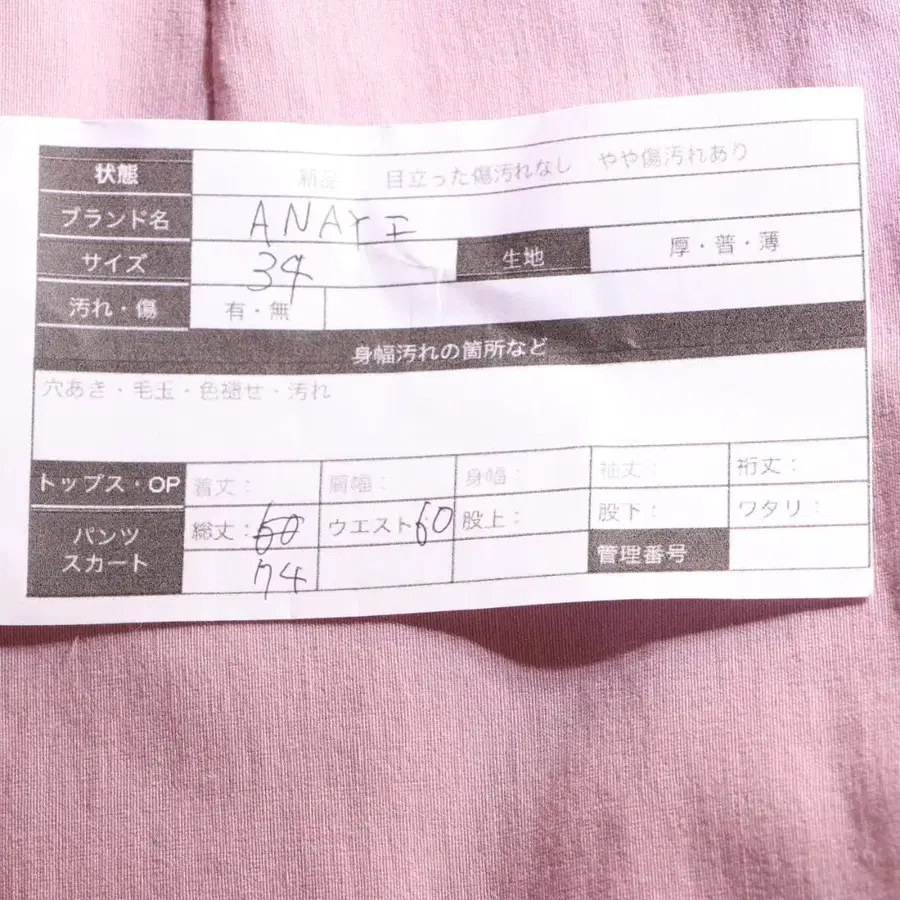 状態 新品 目立った傷汚れなし やや傷汚れあり
ブランド名 ANAYI
サイズ 34 生地 厚・普・薄
汚れ・傷 有・無
身幅汚れの箇所など
穴あき・毛玉・色褪せ・汚れ
トップス・OP 着丈: 肩幅: 身幅: 袖丈: 裄丈:
パンツ スカート 総丈: 60 ウエスト 60 股上: 股下: ワタリ:
74 管理番号